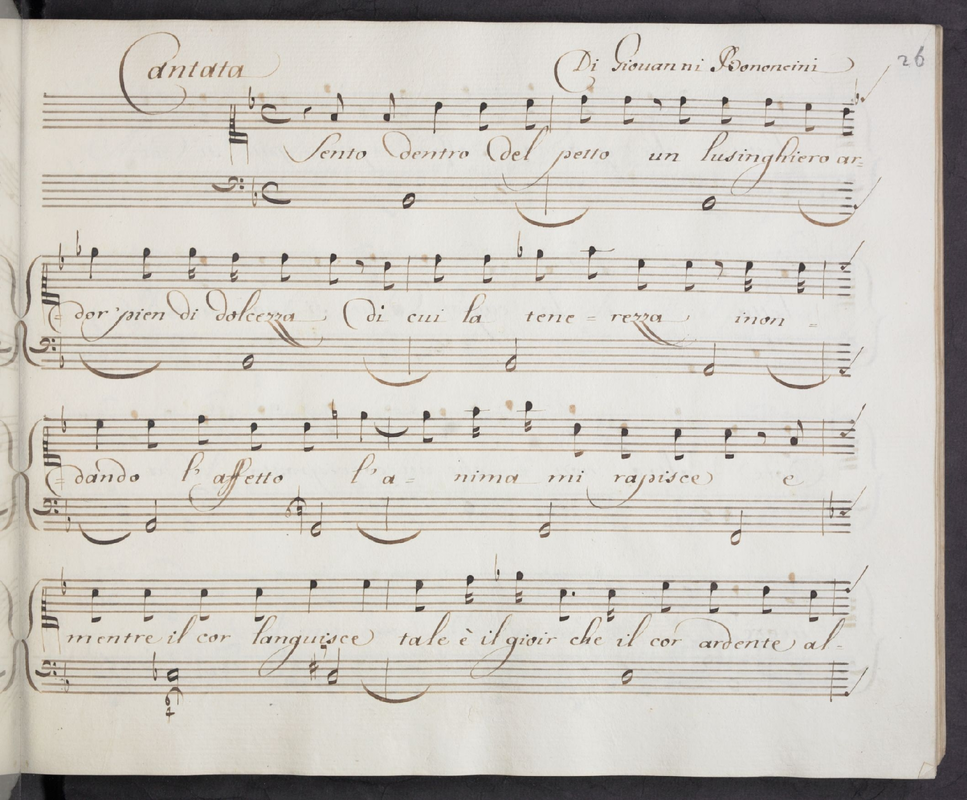 Cantata Di Giovanni Bononcini 26
Sento dentro del petto un lusinghiero ar-
=dor pien di dolcezza di cui la tene=rezza inon=
=dando l'affetto l'a=nima mi rapisce e
mentre il cor languisce tale è il gioir che il cor ardente al-